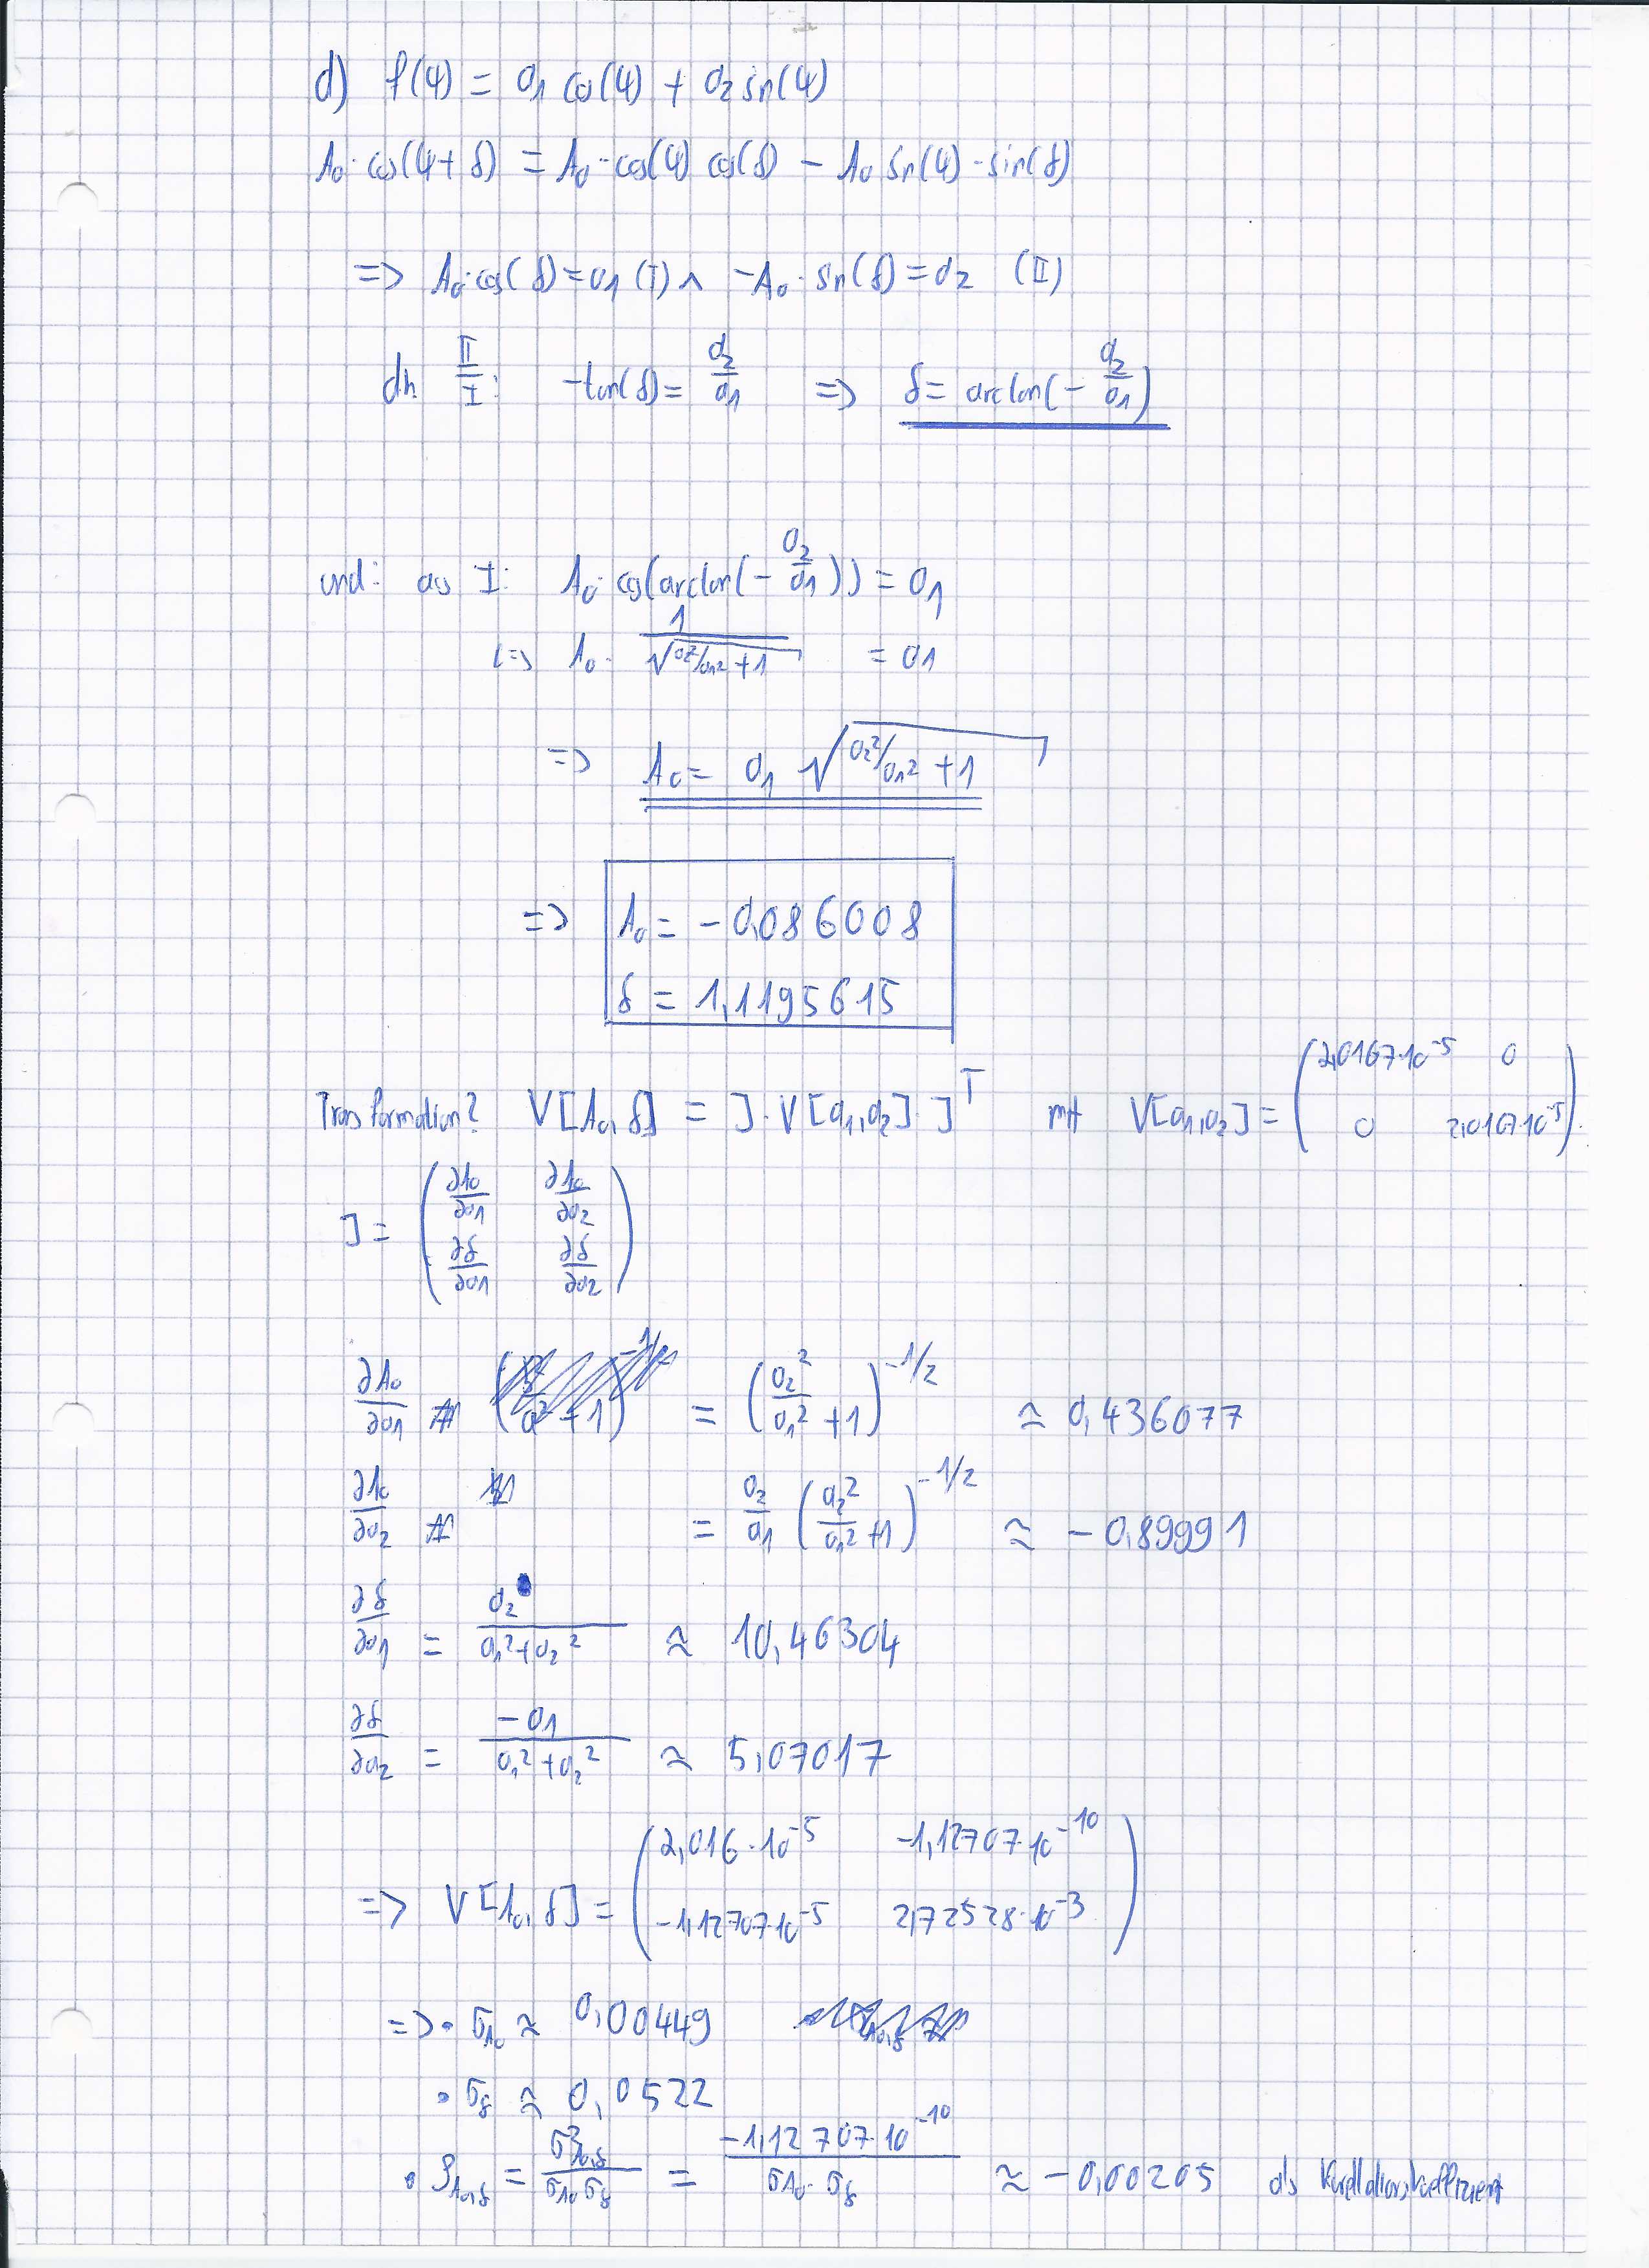 d) f(ψ) = a₁ cos(ψ) + a₂ sin(ψ)
A₀ · cos(ψ + δ) = A₀ · cos(ψ) cos(δ) − A₀ sin(ψ) · sin(δ)
=> A₀ · cos(δ) = a₁ (I) ∧ −A₀ · sin(δ) = a₂ (II)
dh II/I: −tan(δ) = a₂/a₁ => δ = arctan(− a₂/a₁)
und: aus I: A₀ · cos(arctan(− a₂/a₁)) = a₁
<=> A₀ · 1/√(a₂²/a₁² + 1) = a₁
=> A₀ = a₁ √(a₂²/a₁² + 1)
=> A₀ = −0,086008
δ = 1,1195615
Transformation? V[A₀, δ] = J · V[a₁, a₂] · Jᵀ mit V[a₁, a₂] = (2,0167·10⁻⁵ 0
0 2,0167·10⁻⁵).
J = (∂A₀/∂a₁ ∂A₀/∂a₂
∂δ/∂a₁ ∂δ/∂a₂)
∂A₀/∂a₁ = (a₂²/a₁² + 1)^(−1/2) ≈ 0,436077
∂A₀/∂a₂ = a₂/a₁ (a₂²/a₁² + 1)^(−1/2) ≈ −0,89991
∂δ/∂a₁ = a₂/(a₁² + a₂²) ≈ 10,46304
∂δ/∂a₂ = −a₁/(a₁² + a₂²) ≈ 5,07017
=> V[A₀, δ] = (2,016·10⁻⁵ −1,12707·10⁻¹⁰
−1,12707·10⁻⁵ 2,72528·10⁻³)
=> • σ_A₀ ≈ 0,00449
• σ_δ ≈ 0,0522
• ρ_A₀,δ = σ²_A₀,δ/(σ_A₀ σ_δ) = −1,12707·10⁻¹⁰/(σ_A₀ · σ_δ) ≈ −0,00205 als Korellationskoeffizient